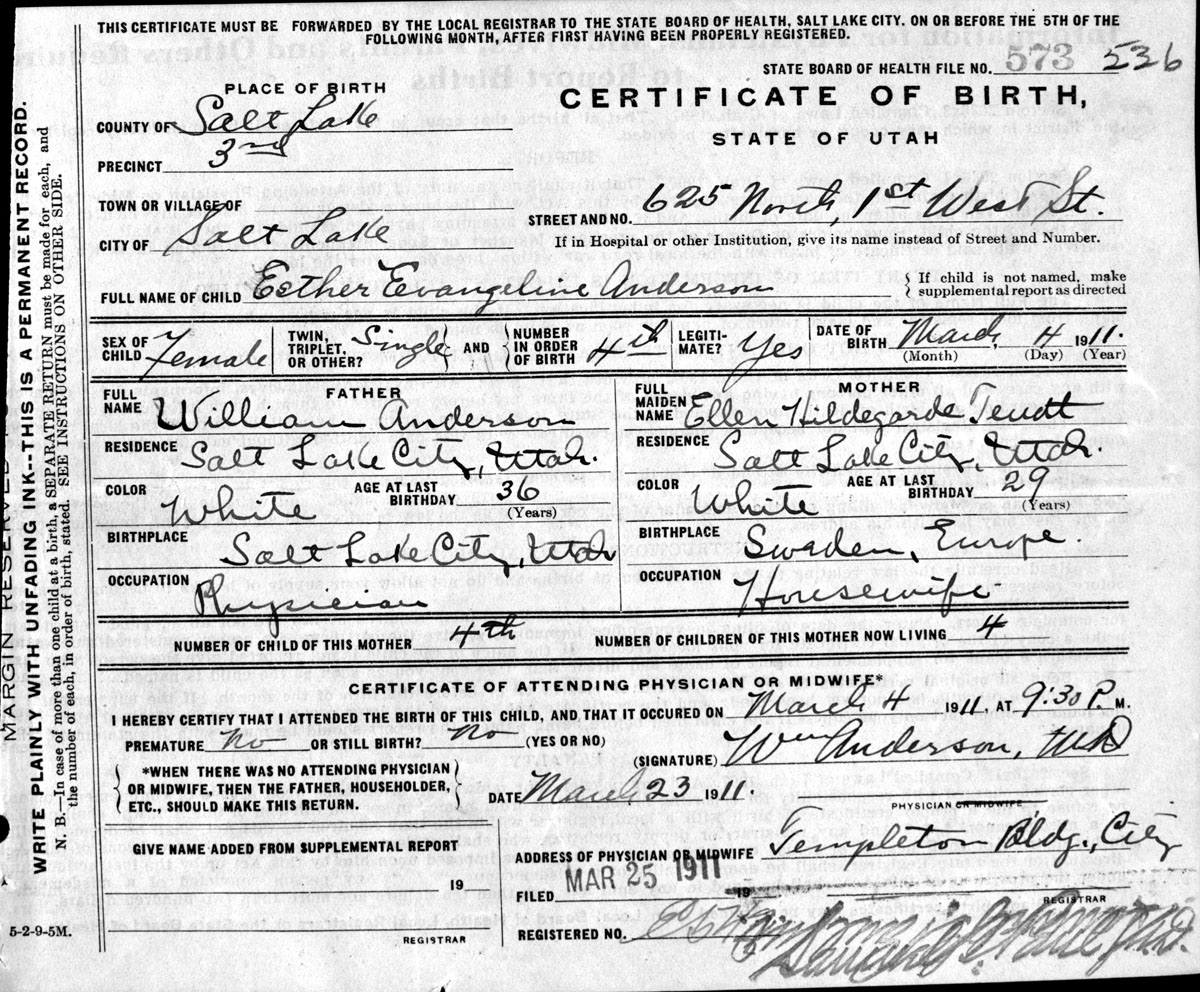 THIS CERTIFICATE MUST BE FORWARDED BY THE LOCAL REGISTRAR TO THE STATE BOARD OF HEALTH, SALT LAKE CITY. ON OR BEFORE THE 5TH OF THE
FOLLOWING MONTH, AFTER FIRST HAVING BEEN PROPERLY REGISTERED.
STATE BOARD OF HEALTH FILE NO. 573 536
PLACE OF BIRTH
CERTIFICATE OF BIRTH,
STATE OF UTAH
COUNTY OF Salt Lake
PRECINCT 3rd
TOWN OR VILLAGE OF
STREET AND NO. 625 North, 1st West St.
CITY OF Salt Lake
If in Hospital or other Institution, give its name instead of Street and Number.
FULL NAME OF CHILD Esther Evangeline Anderson
If child is not named, make
supplemental report as directed
SEX OF CHILD Female
TWIN, TRIPLET, OR OTHER? Single AND NUMBER IN ORDER OF BIRTH 4th
LEGITI- MATE? Yes
DATE OF BIRTH March, 4 1911.
(Month) (Day) (Year)
FATHER
FULL NAME William Anderson
RESIDENCE Salt Lake City, Utah.
COLOR White AGE AT LAST BIRTHDAY 36 (Years)
BIRTHPLACE Salt Lake City, Utah
OCCUPATION Physician
MOTHER
FULL MAIDEN NAME Ellen Hildegarde Teudt
RESIDENCE Salt Lake City, Utah.
COLOR White AGE AT LAST BIRTHDAY 29 (Years)
BIRTHPLACE Sweden, Europe.
OCCUPATION Housewife
NUMBER OF CHILD OF THIS MOTHER 4th NUMBER OF CHILDREN OF THIS MOTHER NOW LIVING 4
CERTIFICATE OF ATTENDING PHYSICIAN OR MIDWIFE*
I HEREBY CERTIFY THAT I ATTENDED THE BIRTH OF THIS CHILD, AND THAT IT OCCURED ON March 4 1911. AT 9:30 P. M.
PREMATURE No OR STILL BIRTH? No (YES OR NO)
(SIGNATURE) Wm Anderson, M.D
*WHEN THERE WAS NO ATTENDING PHYSICIAN
OR MIDWIFE, THEN THE FATHER, HOUSEHOLDER,
ETC., SHOULD MAKE THIS RETURN.
DATE March 23 1911.
PHYSICIAN OR MIDWIFE
GIVE NAME ADDED FROM SUPPLEMENTAL REPORT
19
REGISTRAR
ADDRESS OF PHYSICIAN OR MIDWIFE Templeton Bldg., City
FILED MAR 25 1911 19
REGISTRAR
REGISTERED NO.
5-2-9-5M.
MARGIN RESERVED
WRITE PLAINLY WITH UNFADING INK--THIS IS A PERMANENT RECORD.
N. B.—In case of more than one child at a birth, a SEPARATE RETURN must be made for each, and
the number of each, in order of birth, stated. SEE INSTRUCTIONS ON OTHER SIDE.